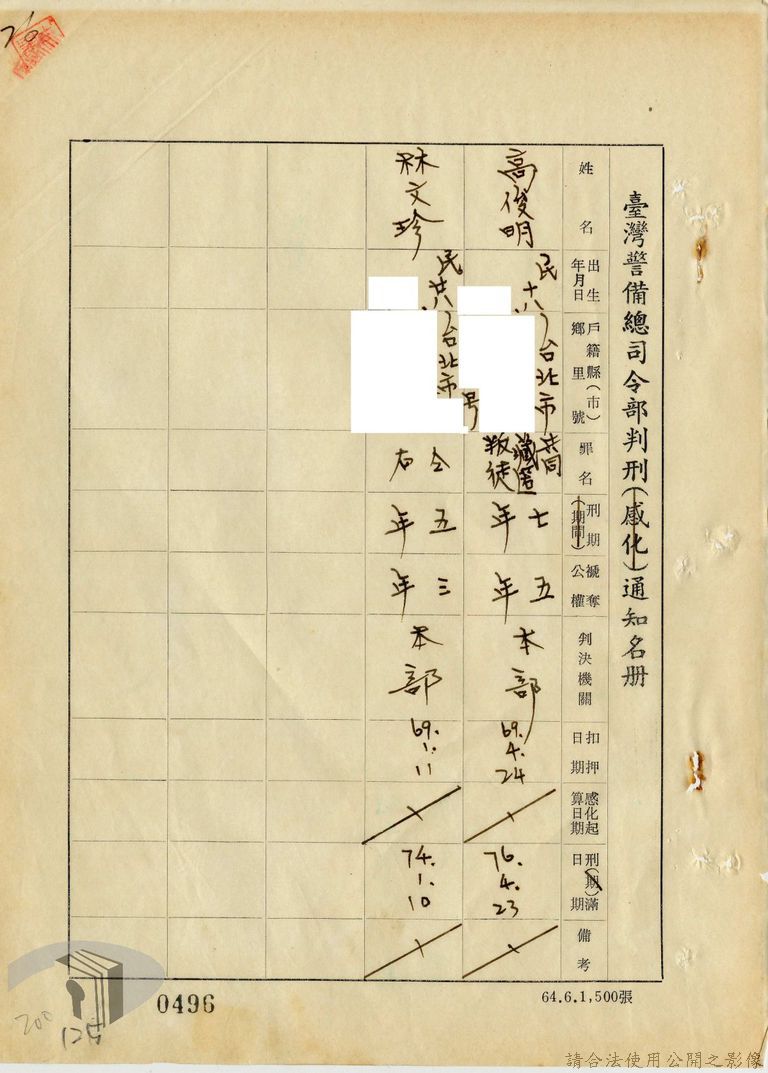 26
臺灣警備總司令部判刑（感化）通知名册
姓名
出生年月日
戶籍縣（市）鄉里號
罪名
刑期（期間）
褫奪公權
判決機關
扣押日期
感化起算日期
刑（期）滿日期
備考
高俊明
民十八、
台北市
号
共同藏匿叛徒
七年
五年
本部
69.4.24
76.4.23
林文珍
民廿八、
台北市
仝右
五年
三年
本部
69.1.11
74.1.10
64.6.1,500張
0496
200
125
請合法使用公開之影像